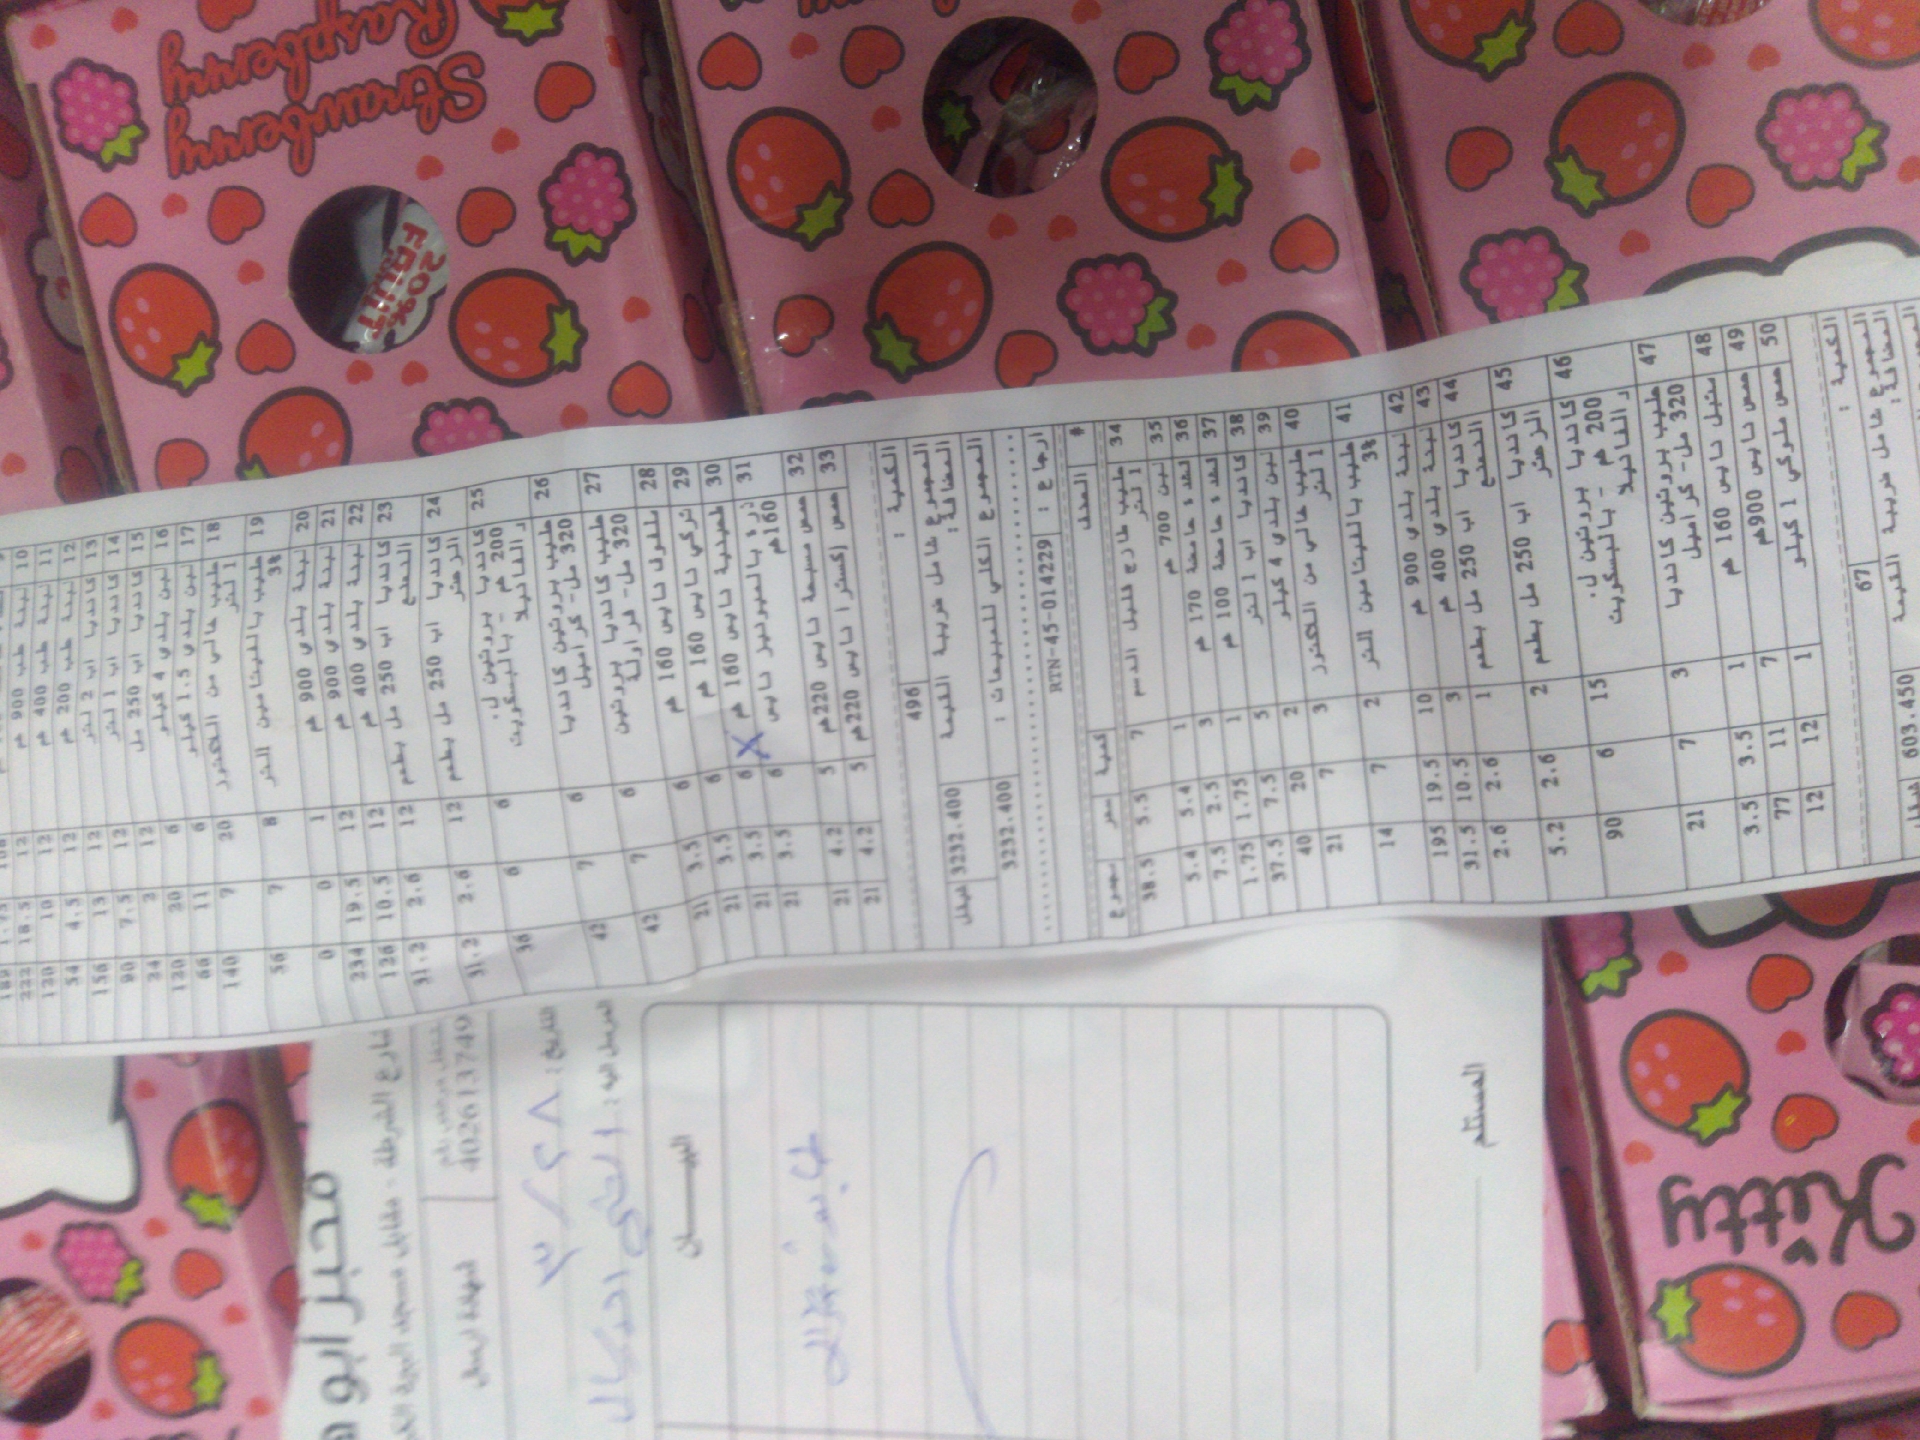 Strawberry
Raspberry
20%
FRUIT
222 18.5 12 لبنة طب 900 غم 10
120 10 12 لبنة طب 400 غم 11
54 4.5 12 لبنة طب 200 غم 12
156 13 12 كانديا اب 2 لتر 13
90 7.5 12 كانديا اب 1 لتر 14
24 2 12 كانديا اب 250 مل 15
120 20 6 لبن بلدي 4 كيلو 16
66 11 6 لبن بلدي 1.5 كيلو 17
140 7 20 حليب خالي من اللكتوز 18
1 لتر
56 7 8 حليب بالفيتامين لتر 19
3%
0 0 1 لبنة بلدي 900 غم 20
234 19.5 12 لبنة بلدي 900 غم 21
126 10.5 12 لبنة بلدي 400 غم 22
31.2 2.6 12 كانديا اب 250 مل بطعم 23
النعنع
31.2 2.6 12 كانديا اب 250 مل بطعم 24
الزعتر
36 6 6 كانديا بروتين ل. 25
200 غم - بالبسكويت
و الفانيلا
42 7 6 حليب بروتين كانديا 26
320 مل- كراميل
42 7 6 حليب كانديا بروتين 27
320 مل- فراولة
21 3.5 6 ملفوف نايس 160 غم 28
21 3.5 6 تركي نايس 160 غم 29
21 3.5 6 طحينية نايس 160 غم 30
21 3.5 6 ذرة بالميونيز نايس 31
160غم
21 4.2 5 حمص مسبحة نايس 220غم 32
21 4.2 5 حمص إكسترا نايس 220غم 33
الكمية : 496
المجموع شامل ضريبة القيمة
المضافة: 3232.400 شيكل
المجموع الكلي للمبيعات : 3232.400
ارجاع : RTN-45-014229
# الصنف كمية سعر مجموع
38.5 5.5 7 حليب طازج قليل الدسم 34
1 لتر
5.4 5.4 1 لبن 700 غم 35
7.5 2.5 3 قشدة حامضة 170 غم 36
1.75 1.75 1 قشدة حامضة 100 غم 37
37.5 7.5 5 كانديا اب 1 لتر 38
40 20 2 لبن بلدي 4 كيلو 39
21 7 3 حليب خالي من اللكتوز 40
1 لتر
14 7 2 حليب بالفيتامين لتر 41
3%
195 19.5 10 لبنة بلدي 900 غم 42
31.5 10.5 3 لبنة بلدي 400 غم 43
2.6 2.6 1 كانديا اب 250 مل بطعم 44
النعنع
5.2 2.6 2 كانديا اب 250 مل بطعم 45
الزعتر
90 6 15 كانديا بروتين ل. 46
200 غم - بالبسكويت
و الفانيلا
21 7 3 حليب بروتين كانديا 47
320 مل- كراميل
3.5 3.5 1 متبل نايس 160 غم 48
77 11 7 حمص نايس 900غم 49
12 12 1 حمص ملوكي 1 كيلو 50
الكمية : 67
المجموع شامل ضريبة القيمة
المضافة: 603.450 شيكل
مخبز ابو
شارع الشرطة - مقابل مسجد
مشتغل مرخص رقم
402613749
شهادة ارسال
التاريخ: ٢٨ / ٣
المرسل اليه:
البيــــــان
المستلم
Kitty